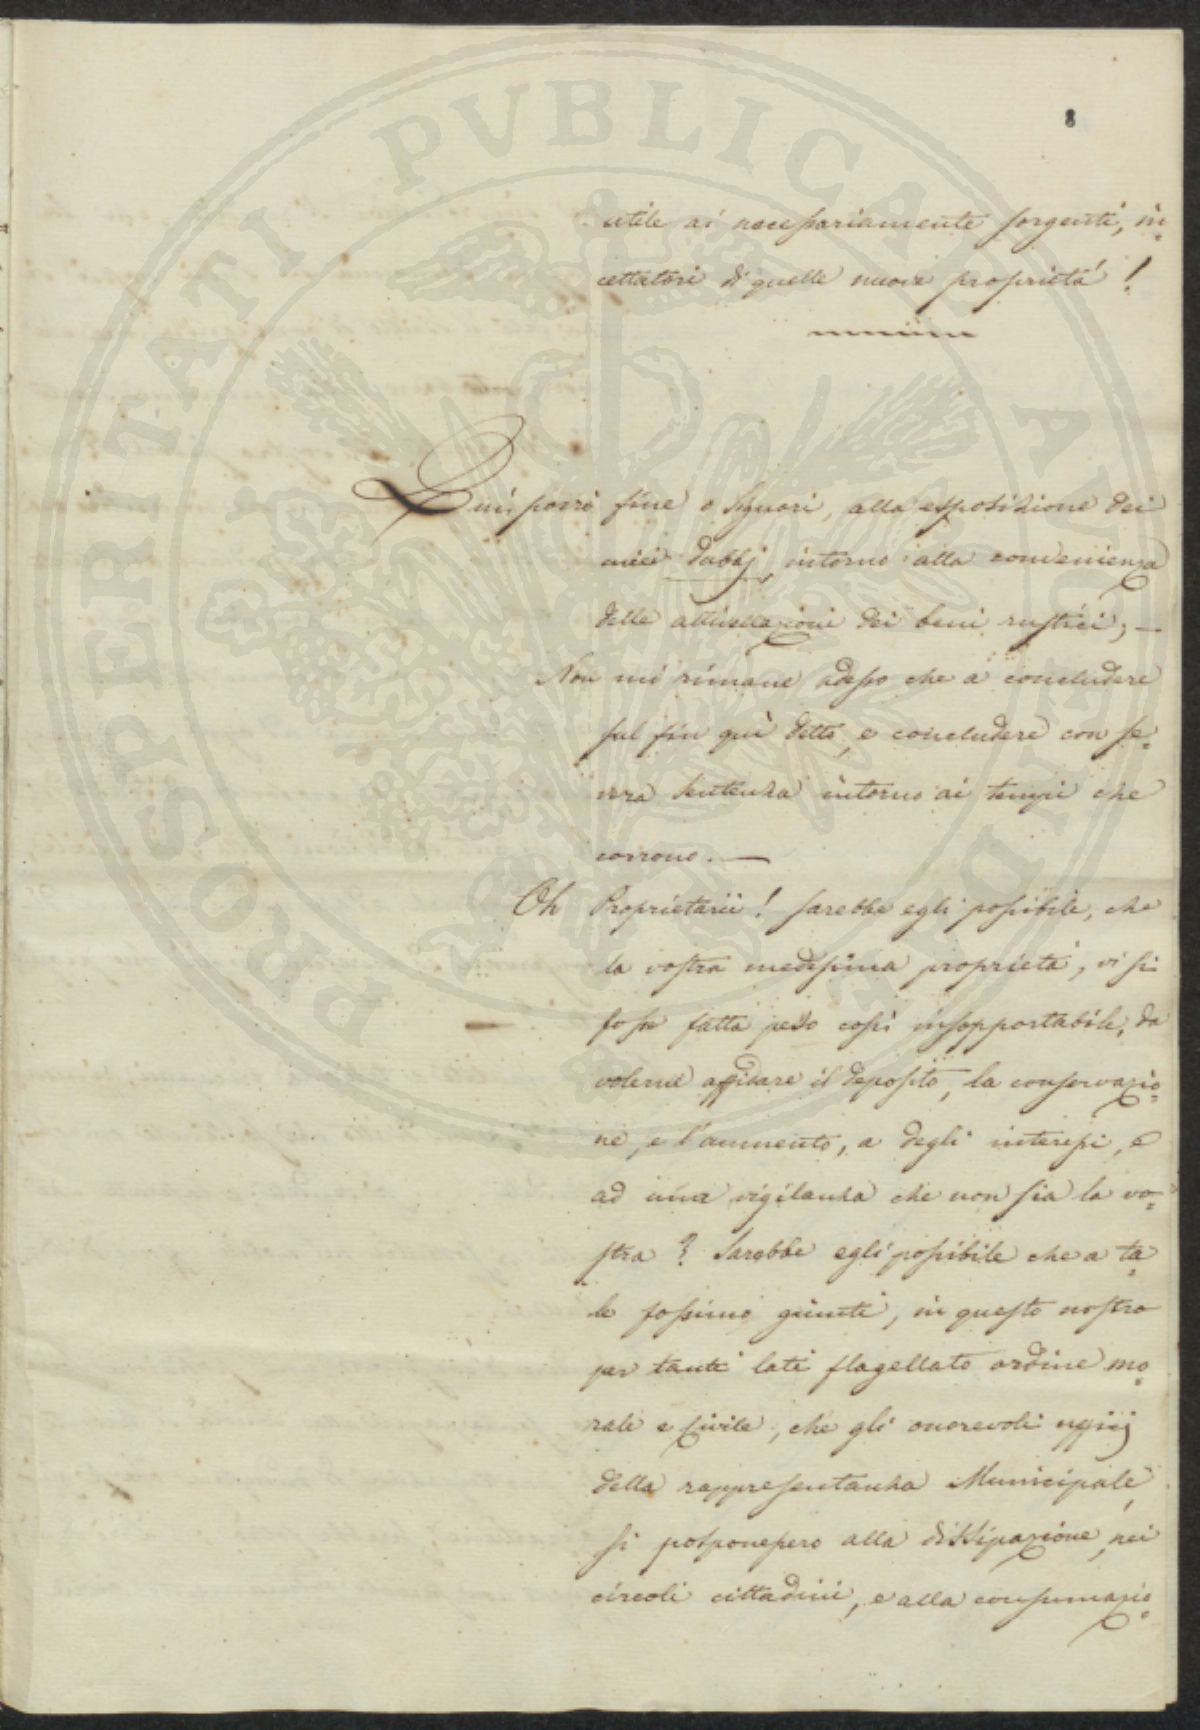 8
utile ai necessariamente sorgenti, in=
cettatori di quelle nuove proprietà!
Qui porrò fine o Signori, alla esposizione dei
miei dubbj, intorno alla convenienza
delle allivellazioni dei beni rustici; —
Non mi rimane adesso che a concludere
sul fin quì detto, e concludere con se=
vera sentenza intorno ai tempi che
corrono. —
Oh Proprietarii! sarebbe egli possibile, che
la vostra medesima proprietà, vi si
fosse fatta peso così insopportabile, da
volerne affidare il deposito, la conservazio=
ne, e l'aumento, a degli interessi, e
ad una vigilanza che non sia la vo=
stra? Sarebbe egli possibile che a ta=
le fossimo giunti, in questo nostro
per tanti lati flagellato ordine mo=
rale e civile, che gli onorevoli uffizj
della rappresentanza Municipale,
si posponessero alla dissipazione, nei
circoli cittadini, e alla consumazio=
PROSPERITATI PVBLICAE AVGENDAE